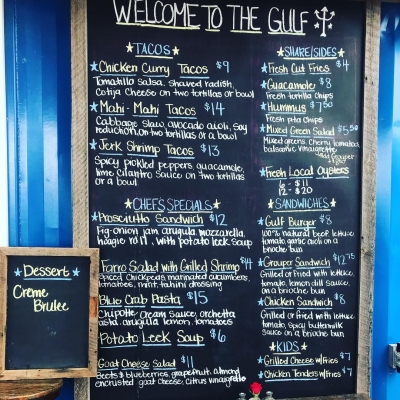 WELCOME TO THE GULF
TACOS
Chicken Curry Tacos $9
Tomatillo salsa, shaved radish,
Cotija Cheese on two tortillas or bowl
Mahi-Mahi Tacos $14
Cabbage slaw, avocado aioli, soy
reduction, on two tortillas or a bowl
Jerk Shrimp Tacos $13
Spicy pickled peppers, guacamole,
lime cilantro sauce on two tortillas
or a bowl
CHEF'S SPECIALS
Prosciutto Sandwich $12
Fig-onion jam, arugula, mozzarella,
hoagie roll, with potato leek soup
Farro Salad with Grilled Shrimp $14
Spiced chickpeas, marinated cucumbers,
tomatoes, mint, tahini dressing
Blue Crab Pasta $15
Chipotle cream sauce, orchetta
pasta, arugula, lemon, tomatoes
Potato Leek Soup $6
Goat Cheese Salad $11
Beets & blueberries, grapefruit, almond
encrusted goat cheese, citrus vinaigrette
SHARE/SIDES
Fresh Cut Fries $4
Guacamole $8
Fresh tortilla chips
Hummus $7.50
Fresh pita chips
Mixed Green Salad $5.50
Mixed greens, cherry tomatoes,
balsamic vinaigrette
Add Grouper
Fresh Local Oysters
6 - $11
12 - $20
SANDWICHES
Gulf Burger $8
100% natural beef, lettuce,
tomato, garlic aioli on a
brioche bun
Grouper Sandwich $12.75
Grilled or fried with lettuce,
tomato, lemon dill sauce,
on a brioche bun
Chicken Sandwich $8
Grilled or fried with lettuce,
tomato, spicy buttermilk
sauce on a brioche bun
KIDS
Grilled Cheese w/fries $7
Chicken Tenders w/fries $7
Dessert
Creme
Brulee